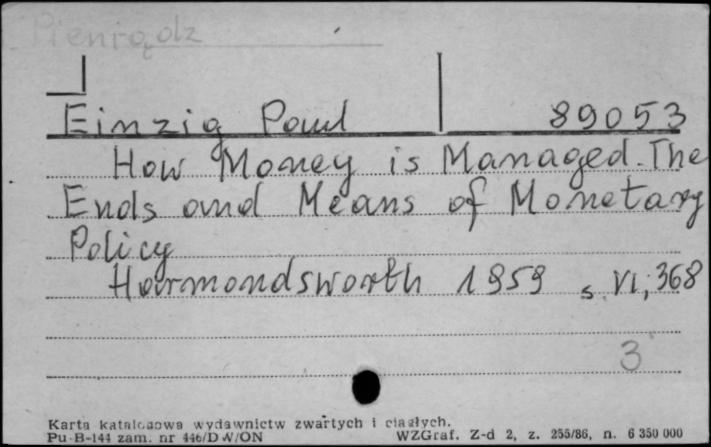 Pieniądz
Einzig Paul 89053
How Money is Managed. The
Ends and Means of Monetary
Policy
Harmondsworth 1959 s. VI, 368
3
Karta katalogowa wydawnictw zwartych i ciągłych.
Pu-B-144 zam. nr 446/DW/ON WZGraf. Z-d 2, z. 255/86, n. 6 350 000